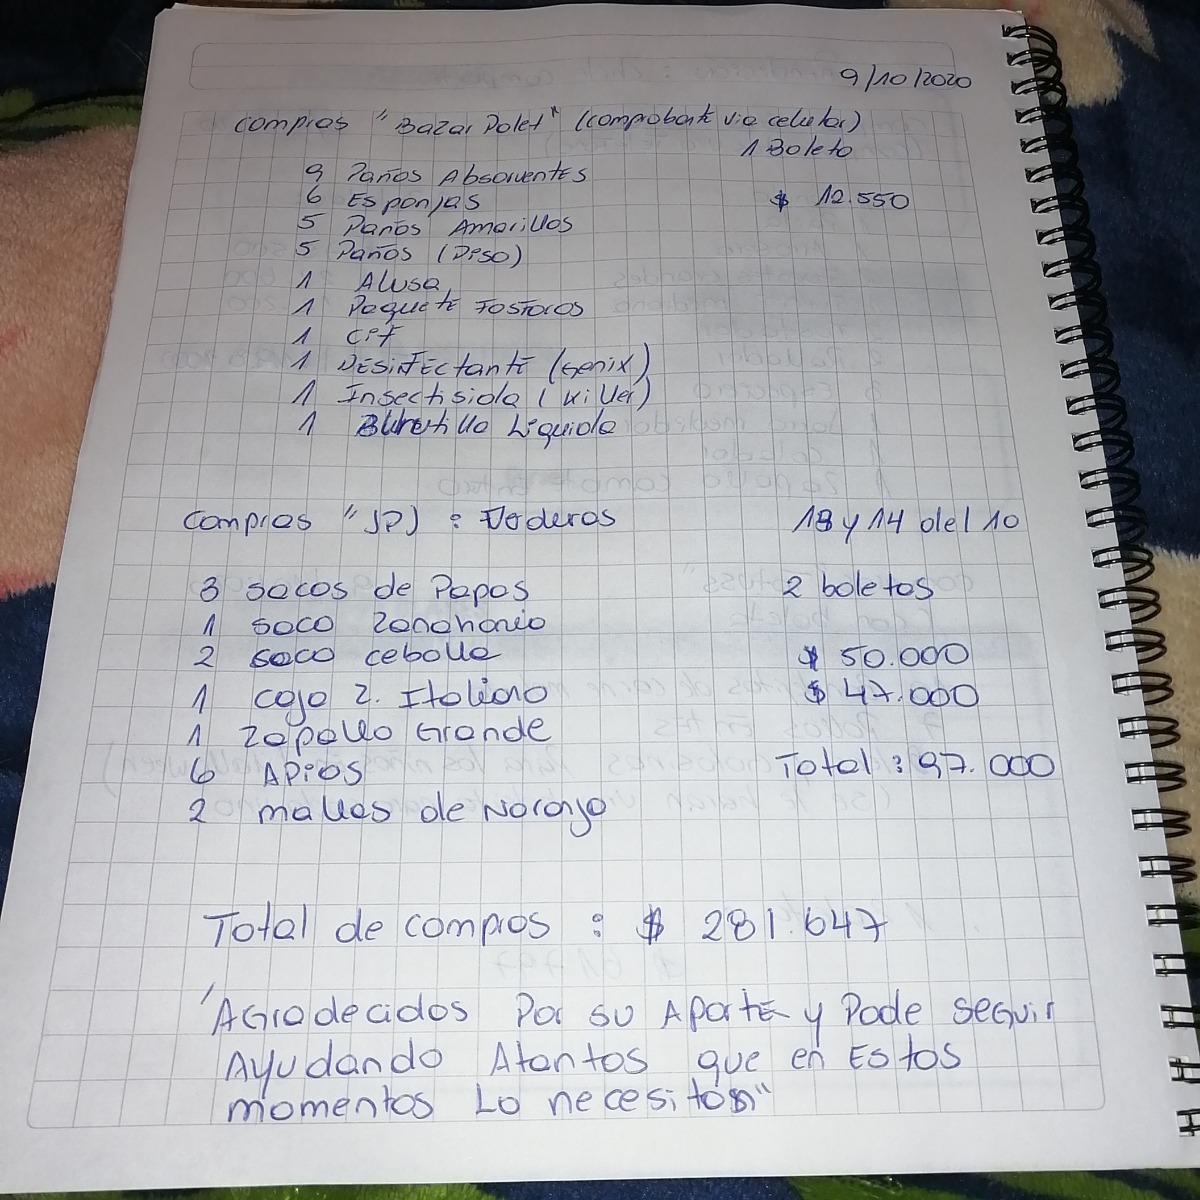 9/10/2020
Compras "Bazar Polet" (comprobante via celular)
1 Boleta
9 Paños Absorventes
6 Esponjas $ 12.550
5 Paños Amarillos
5 Paños (Piso)
1 Alusa
1 Paquete Fosforos
1 Cif
1 Desinfectante (Genix)
1 Insectisida (Killer)
1 Líquida
Compras "JPJ : 13 y 14 del 10
3 sacos de Papas 2 boletas
1 saco Zanahoria
2 saco cebolla $ 50.000
1 caja Z. Italiano $ 47.000
1 Zapallo Grande
6 Apios Total : 97.000
2 mallas de Naranja
Total de compras : $ 281.647
"Agradecidos Por su Aporte y Pode seguir
Ayudando Atantos que en Estos
momentos Lo necesitan"